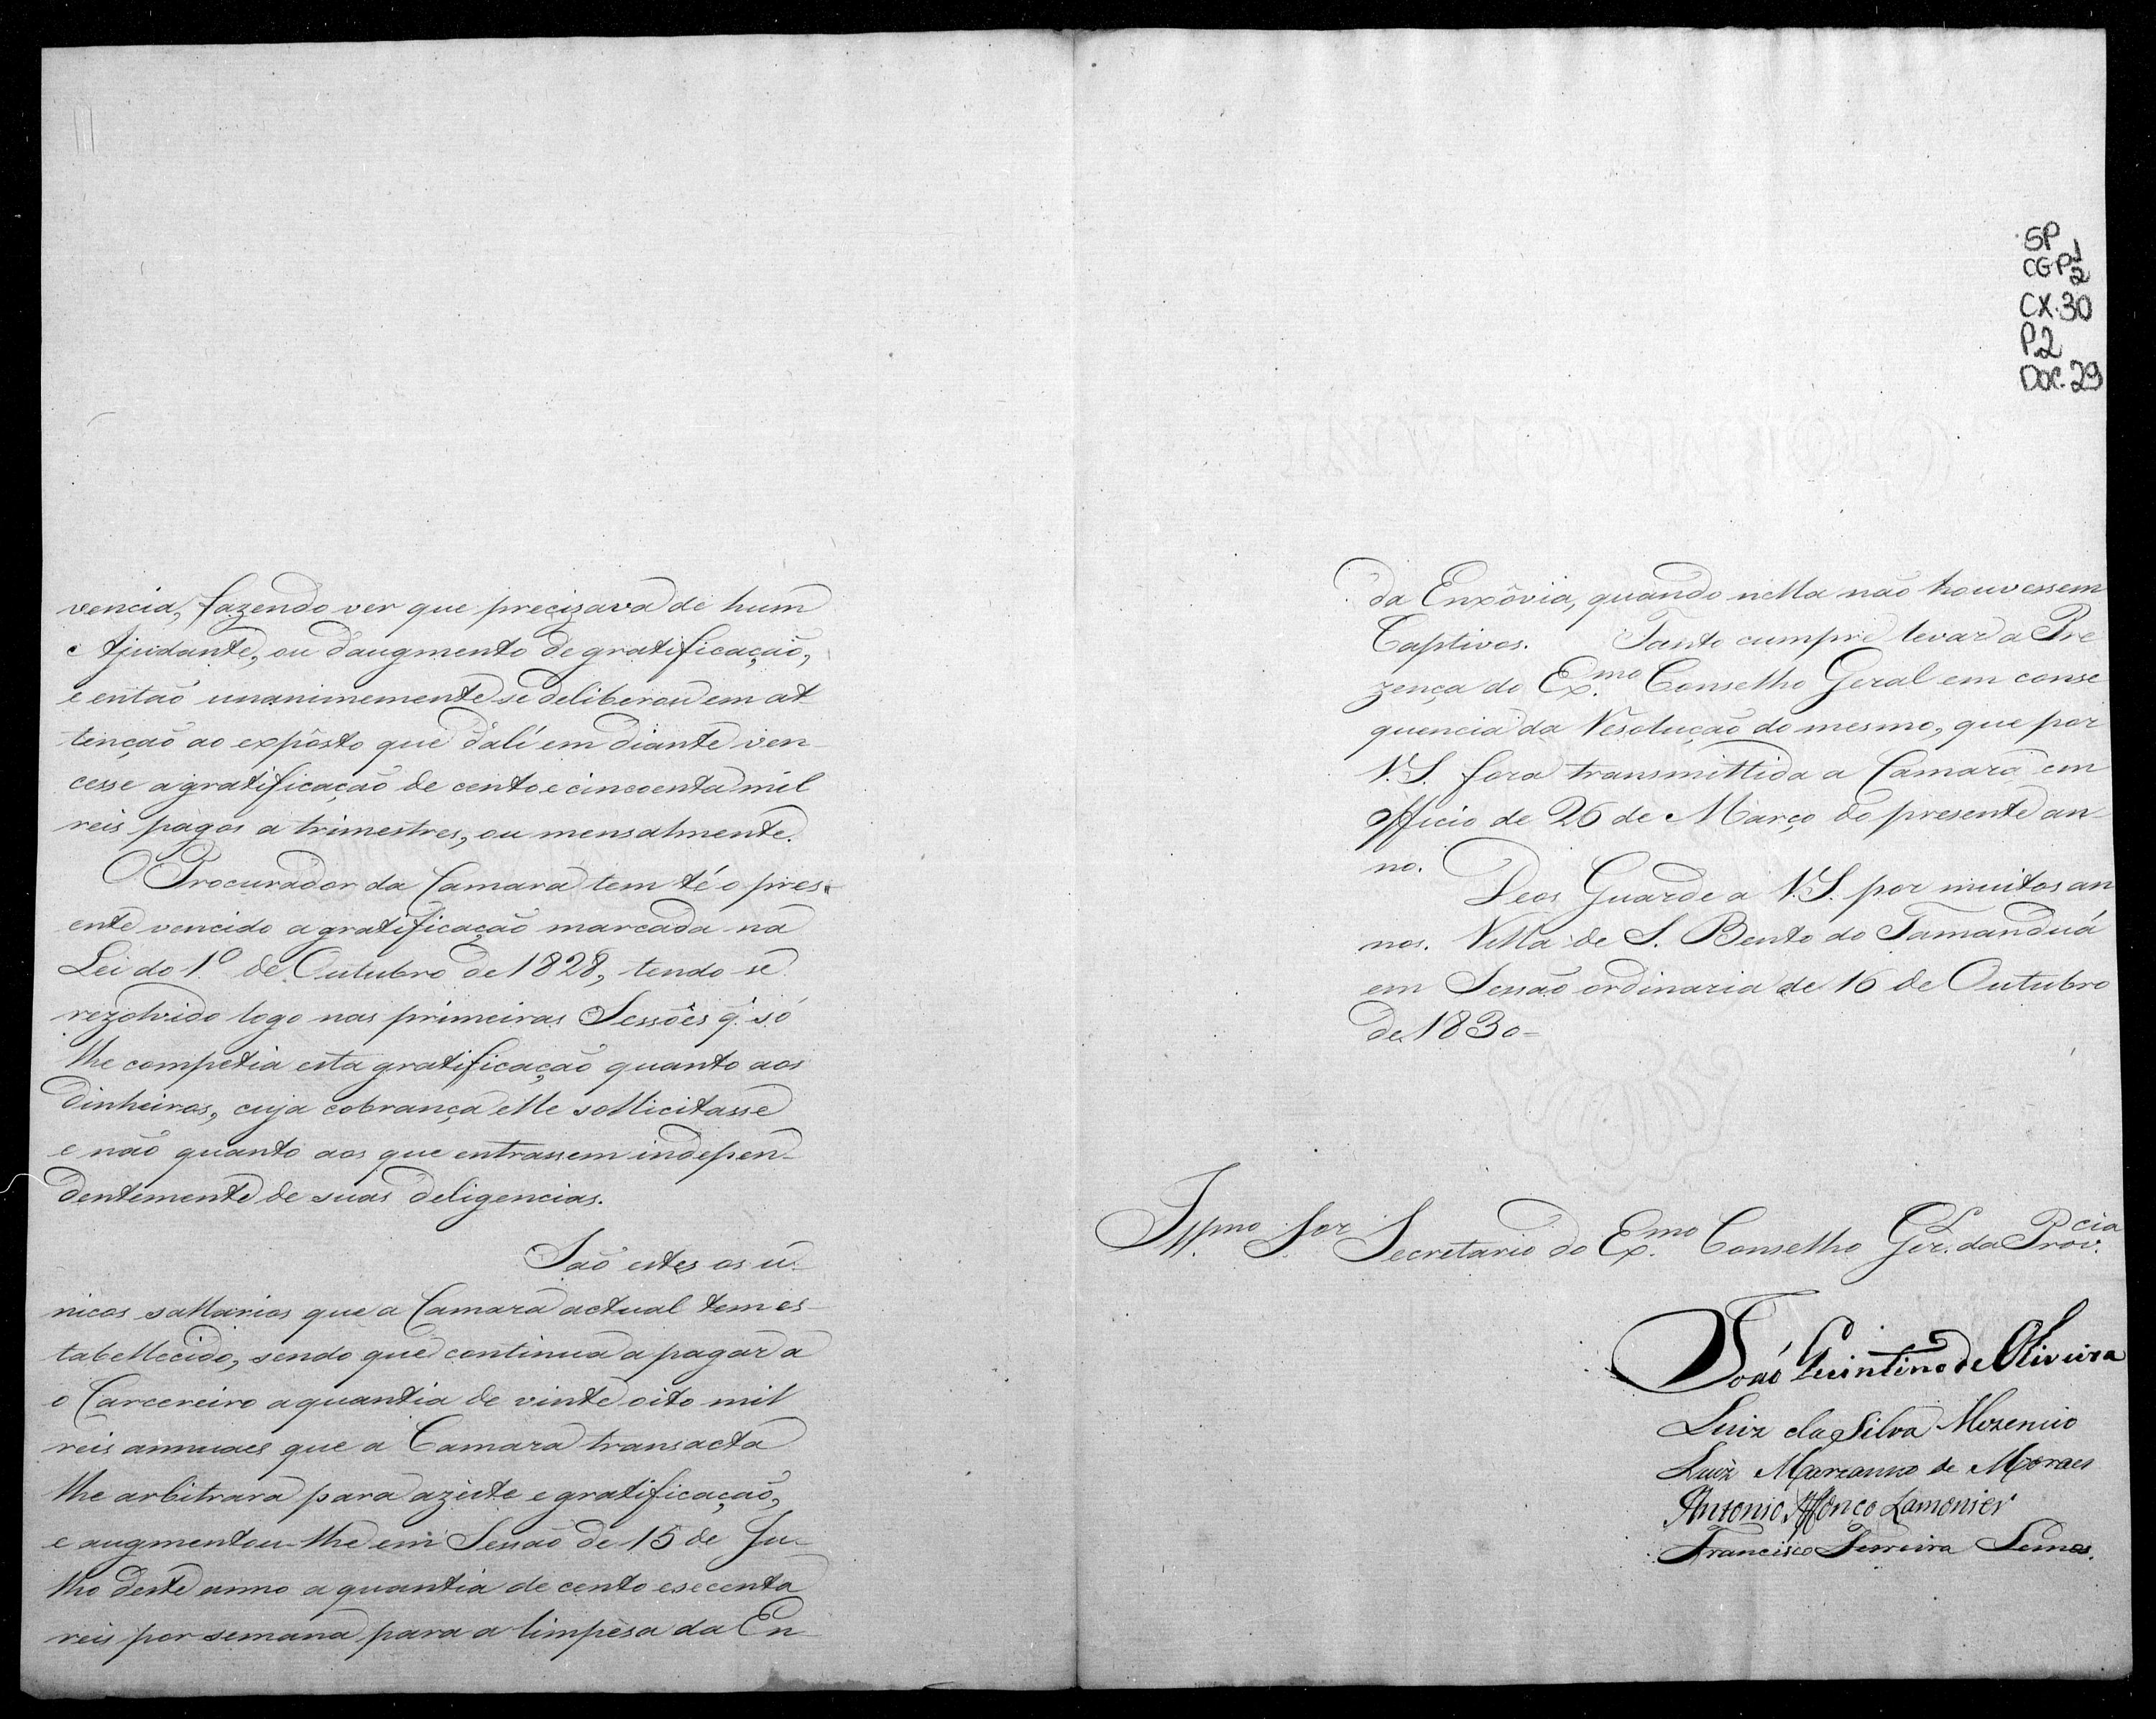 vencia, fazendo ver que precizava de hum
Ajudante, ou d'augmento de gratificação,
e então unanimemente se deliberou em at-
tenção ao expôsto que d'alí em diante ven-
cesse a gratificação de cento e cincoenta mil
reis pagos a trimestres, ou mensalmente.
O Procurador da Camara tem té o pres-
ente vencido a gratificação marcada na
Lei do 1.º de Outubro de 1828, tendo-se
rezolvido logo nas primeiras Sessões q. só
lhe competia esta gratificação quanto aos
dinheiros, cuja cobrança elle sollicitasse
e não quanto aos que entrassem indepen-
dentemente de suas deligencias.
São estes os ú-
nicos sallarios que a Camara actual tem es-
tabellecido, sendo que continua a pagar a
o Carcereiro a quantia de vinte oito mil
reis annuaes que a Camara transacta
lhe arbitrara para azeite e gratificação,
e augmentou-lhe em Sessão de 15 de Ju-
lho deste anno a quantia de cento e secenta
reis por semana para a limpêsa da En-
SP
CGP 1/2
CX.30
P.2
DOC. 29
da Enxôvia, quando nella não houvessem
Captivos. Tanto cumpre levar a Pre
zença do Ex.mo Conselho Geral em conse
quencia da Resolução do mesmo, que por
V.S. fora transmittida a Camara em
Officio de 26 de Março do presente an-
no.
Deos Guarde a V.S. por muitos an
nos. Villa de S. Bento do Tamanduá
em Sessão ordinaria de 16 de Outubro
de 1830-
Illmo Sor Secretario do Ex.mo Conselho Ger.l da Prov.cia
João Quintino de Oliveira
Luiz da Silva Mezencio
Luiz Marianno de Moraes
Antonio Affonço Lamonier
Francisco Ferreira Lemos.